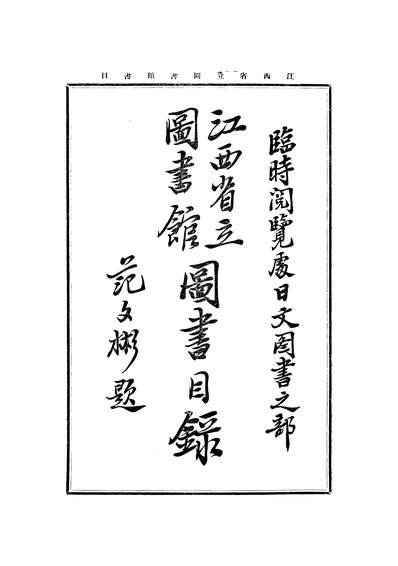 江西省立圖書館書目
臨時閱覽處日文圖書之部
江西省立
圖書館
圖書目錄
范文彬題